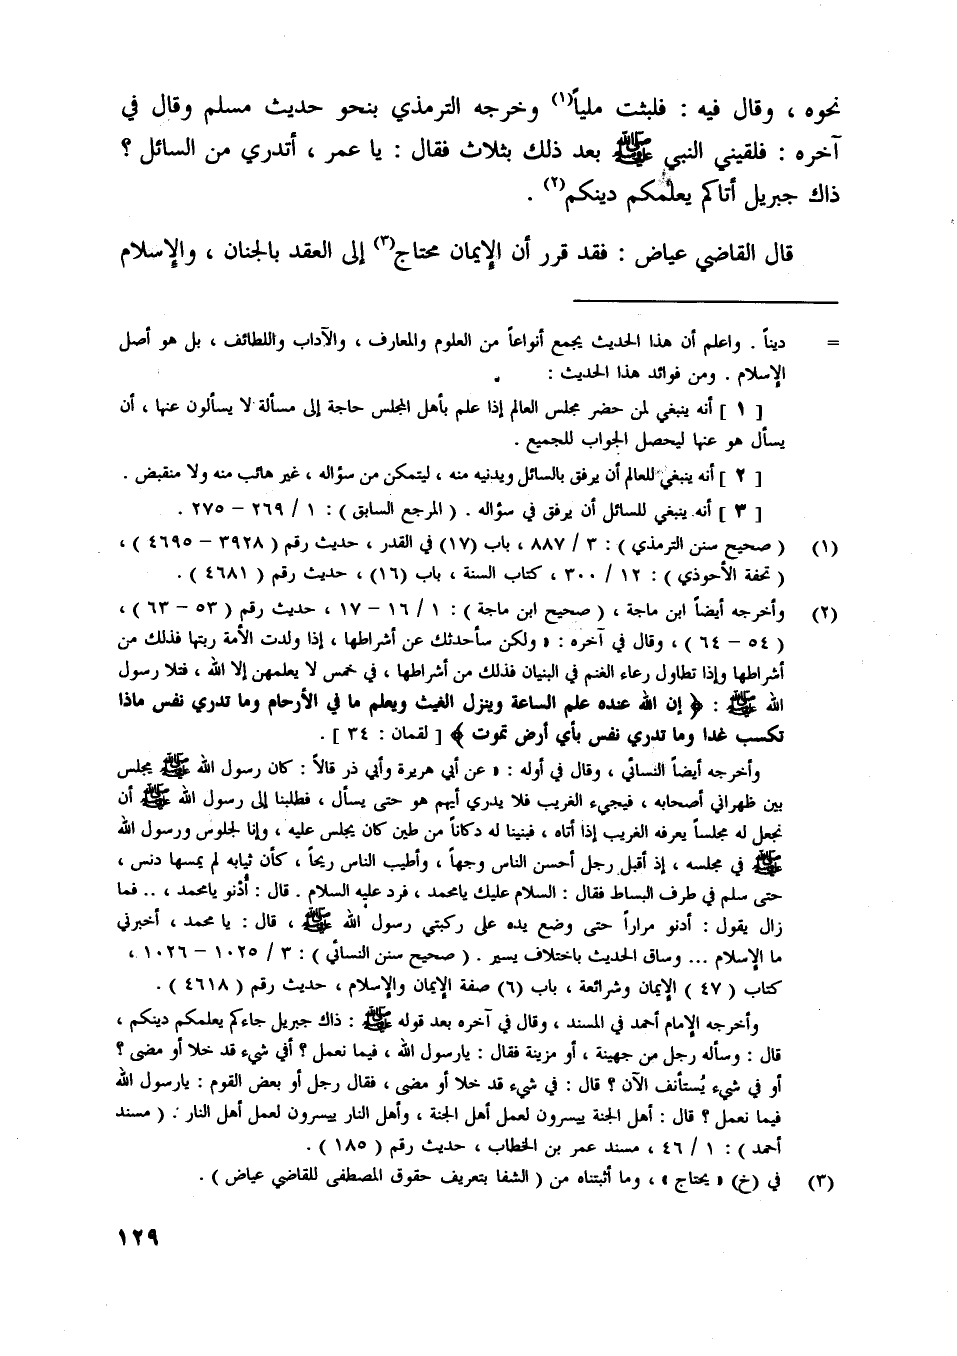 نحوه ، وقال فيه : فلبثت ملياً(١) وخرجه الترمذي بنحو حديث مسلم وقال في
آخره : فلقيني النبي ﷺ بعد ذلك بثلاث فقال : يا عمر ، أتدري من السائل ؟
ذاك جبريل أتاكم يعلمكم دينكم(٢) .
قال القاضي عياض : فقد قرر أن الإيمان محتاج(٣) إلى العقد بالجنان ، والإسلام
= ديناً . واعلم أن هذا الحديث يجمع أنواعاً من العلوم والمعارف ، والآداب واللطائف ، بل هو أصل
الإسلام . ومن فوائد هذا الحديث :
[ ١ ] أنه ينبغي لمن حضر مجلس العالم إذا علم بأهل المجلس حاجة إلى مسألة لا يسألون عنها ، أن
يسأل هو عنها ليحصل الجواب للجميع .
[ ٢ ] أنه ينبغي للعالم أن يرفق بالسائل ويدنيه منه ، ليتمكن من سؤاله ، غير هائب منه ولا منقبض .
[ ٣ ] أنه ينبغي للسائل أن يرفق في سؤاله . ( المرجع السابق ) : ١ / ٢٦٩ – ٢٧٥ .
(١) ( صحيح سنن الترمذي ) : ٣ / ٨٨٧ ، باب (١٧) في القدر ، حديث رقم ( ٣٩٢٨ – ٤٦٩٥ ) ،
( تحفة الأحوذي ) : ١٢ / ٣٠٠ ، كتاب السنة ، باب (١٦) ، حديث رقم ( ٤٦٨١ ) .
(٢) وأخرجه أيضاً ابن ماجة ، ( صحيح ابن ماجة ) : ١ / ١٦ – ١٧ ، حديث رقم ( ٥٣ – ٦٣ ) ،
( ٥٤ – ٦٤ ) ، وقال في آخره : « ولكن سأحدثك عن أشراطها ، إذا ولدت الأمة ربتها فذلك من
أشراطها وإذا تطاول رعاء الغنم في البنيان فذلك من أشراطها ، في خمس لا يعلمهن إلا الله ، فتلا رسول
الله ﷺ : ﴿ إن الله عنده علم الساعة وينزل الغيث ويعلم ما في الأرحام وما تدري نفس ماذا
تكسب غدا وما تدري نفس بأي أرض تموت ﴾ [ لقمان : ٣٤ ] .
وأخرجه أيضاً النسائي ، وقال في أوله : « عن أبي هريرة وأبي ذر قالاً : كان رسول الله ﷺ يجلس
بين ظهراني أصحابه ، فيجيء الغريب فلا يدري أيهم هو حتى يسأل ، فطلبنا إلى رسول الله ﷺ أن
نجعل له مجلساً يعرفه الغريب إذا أتاه ، فبنينا له دكاناً من طين كان يجلس عليه ، وإنا لجلوس ورسول الله
ﷺ في مجلسه ، إذ أقبل رجل أحسن الناس وجهاً ، وأطيب الناس ريحاً ، كأن ثيابه لم يمسها دنس ،
حتى سلم في طرف البساط فقال : السلام عليك يامحمد ، فرد عليه السلام . قال : أُدْنو يامحمد ، .. فما
زال يقول : أدنو مراراً حتى وضع يده على ركبتي رسول الله ﷺ ، قال : يا محمد ، أخبرني
ما الإسلام ... وساق الحديث باختلاف يسير . ( صحيح سنن النسائي ) : ٣ / ١٠٢٥ – ١٠٢٦ ،
كتاب ( ٤٧ ) الإيمان وشرائعة ، باب (٦) صفة الإيمان والإسلام ، حديث رقم ( ٤٦١٨ ) .
وأخرجه الإمام أحمد في المسند ، وقال في آخره بعد قوله ﷺ : ذاك جبريل جاءكم يعلمكم دينكم ،
قال : وسأله رجل من جهينة ، أو مزينة فقال : يارسول الله ، فيما نعمل ؟ أفي شيء قد خلا أو مضى ؟
أو في شيء يُستأنف الآن ؟ قال : في شيء قد خلا أو مضى ، فقال رجل أو بعض القوم : يارسول الله
فيما نعمل ؟ قال : أهل الجنة ييسرون لعمل أهل الجنة ، وأهل النار ييسرون لعمل أهل النار . ( مسند
أحمد ) : ١ / ٤٦ ، مسند عمر بن الخطاب ، حديث رقم ( ١٨٥ ) .
(٣) في (خ) « يحتاج » ، وما أثبتناه من ( الشفا بتعريف حقوق المصطفى للقاضي عياض ) .
١٢٩